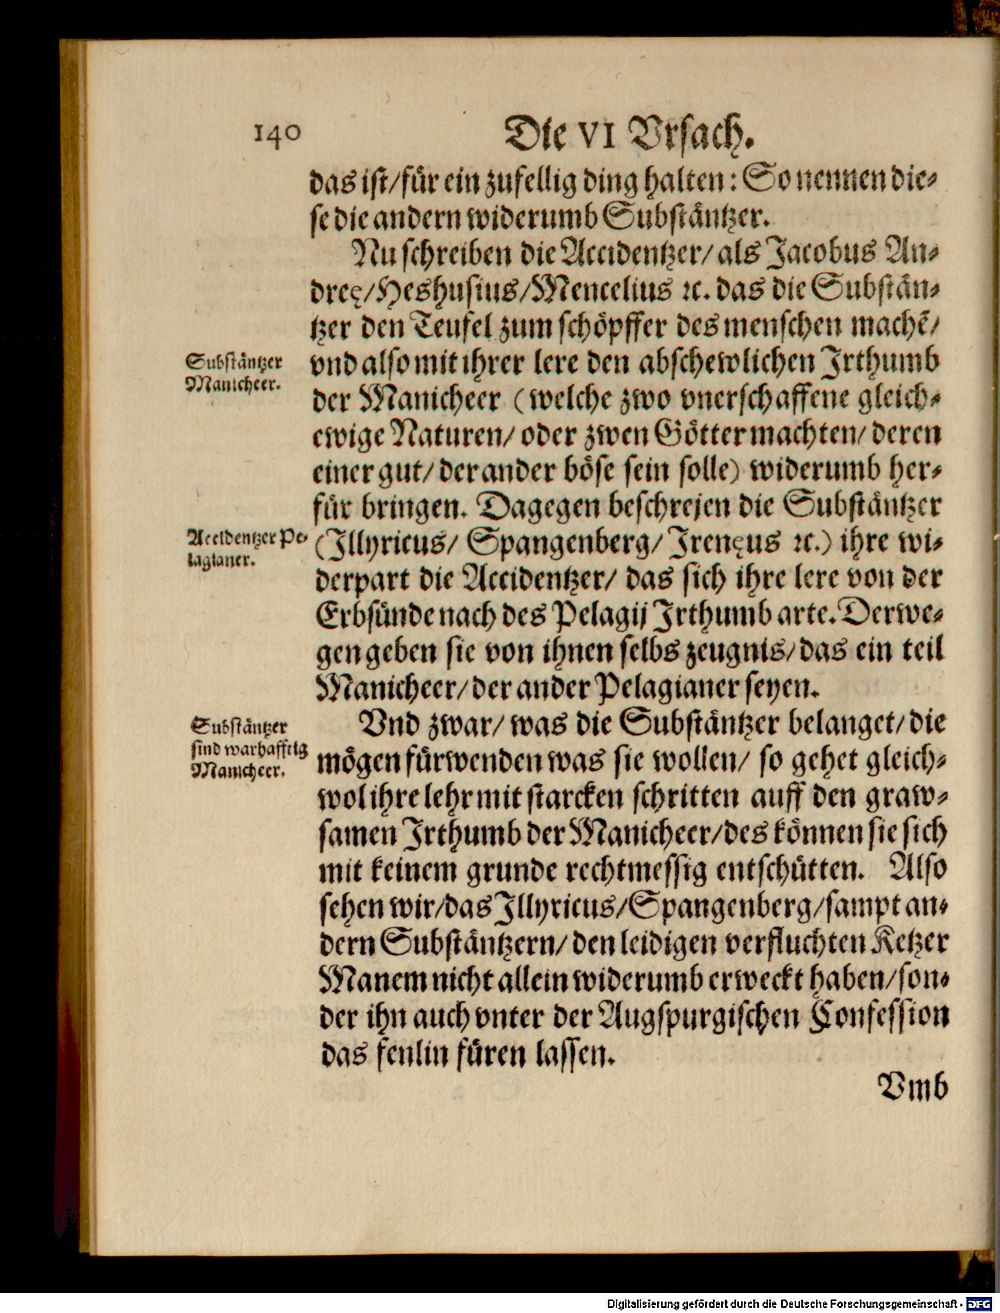 140
Die VI Vrsach.
das ist/für ein zufellig ding halten: So nennen die⸗
se die andern widerumb Substäntzer.
Nu schreiben die Accidentzer/als Jacobus An⸗
dreę/Heshusius/Mencelius ꝛc. das die Substän⸗
tzer den Teufel zum schöpffer des menschen machē/
Substäntzer
Manicheer.
vnd also mit ihrer lere den abschewlichen Irthumb
der Manicheer (welche zwo vnerschaffene gleich⸗
ewige Naturen/ oder zwen Götter machten/ deren
einer gut/ der ander böse sein solle) widerumb her⸗
für bringen. Dagegen beschreien die Substäntzer
Accidentzer Pe⸗
lagianer.
(Illyricus/ Spangenberg/ Irenęus ꝛc.) ihre wi⸗
derpart die Accidentzer/ das sich ihre lere von der
Erbsünde nach des Pelagij Irthumb arte. Derwe⸗
gen geben sie von ihnen selbs zeugnis/das ein teil
Manicheer/der ander Pelagianer seyen.
Substäntzer
sind warhafftig
Manicheer.
Vnd zwar/ was die Substäntzer belanget/die
mögen fürwenden was sie wollen/ so gehet gleich⸗
wol ihre lehr mit starcken schritten auff den graw⸗
samen Irthumb der Manicheer/des können sie sich
mit keinem grunde rechtmessig entschütten. Also
sehen wir/das Illyricus/Spangenberg/sampt an⸗
dern Substäntzern/ den leidigen verfluchten Ketzer
Manem nicht allein widerumb erweckt haben/son⸗
der ihn auch vnter der Augspurgischen Confession
das fenlin füren lassen.
Vmb
Digitalisierung gefördert durch die Deutsche Forschungsgemeinschaft - DFG